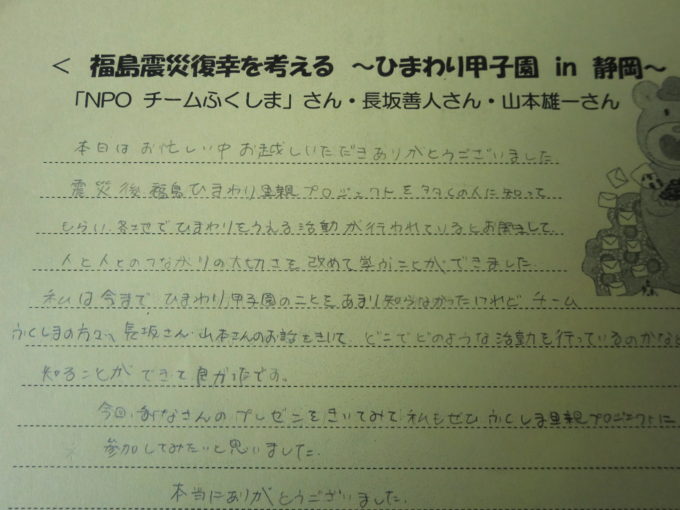 ＜ 福島震災復幸を考える ～ひまわり甲子園 in 静岡～
「NPO チームふくしま」さん・長坂善人さん・山本雄一さん
本日は お忙しい中 お越しいただきありがとうございました.
震災後 福島ひまわり里親プロジェクトを多くの人に知って
もらい、各地でひまわりをうえる活動が行われているとお聞きして、
人と人とのつながりの大切さを改めて学ぶことができました.
私は今まで、ひまわり甲子園のことをあまり知らなかったけれど チーム
ふくしまの方々、長坂さん・山本さんのお話をきいて、どこでどのような活動を行っているのかなど
知ることができて良かったです。
今回、みなさんのプレゼンをきいてみて 私もぜひ ふくしま里親プロジェクトに
参加してみたいと思いました.
本当にありがとうございました.